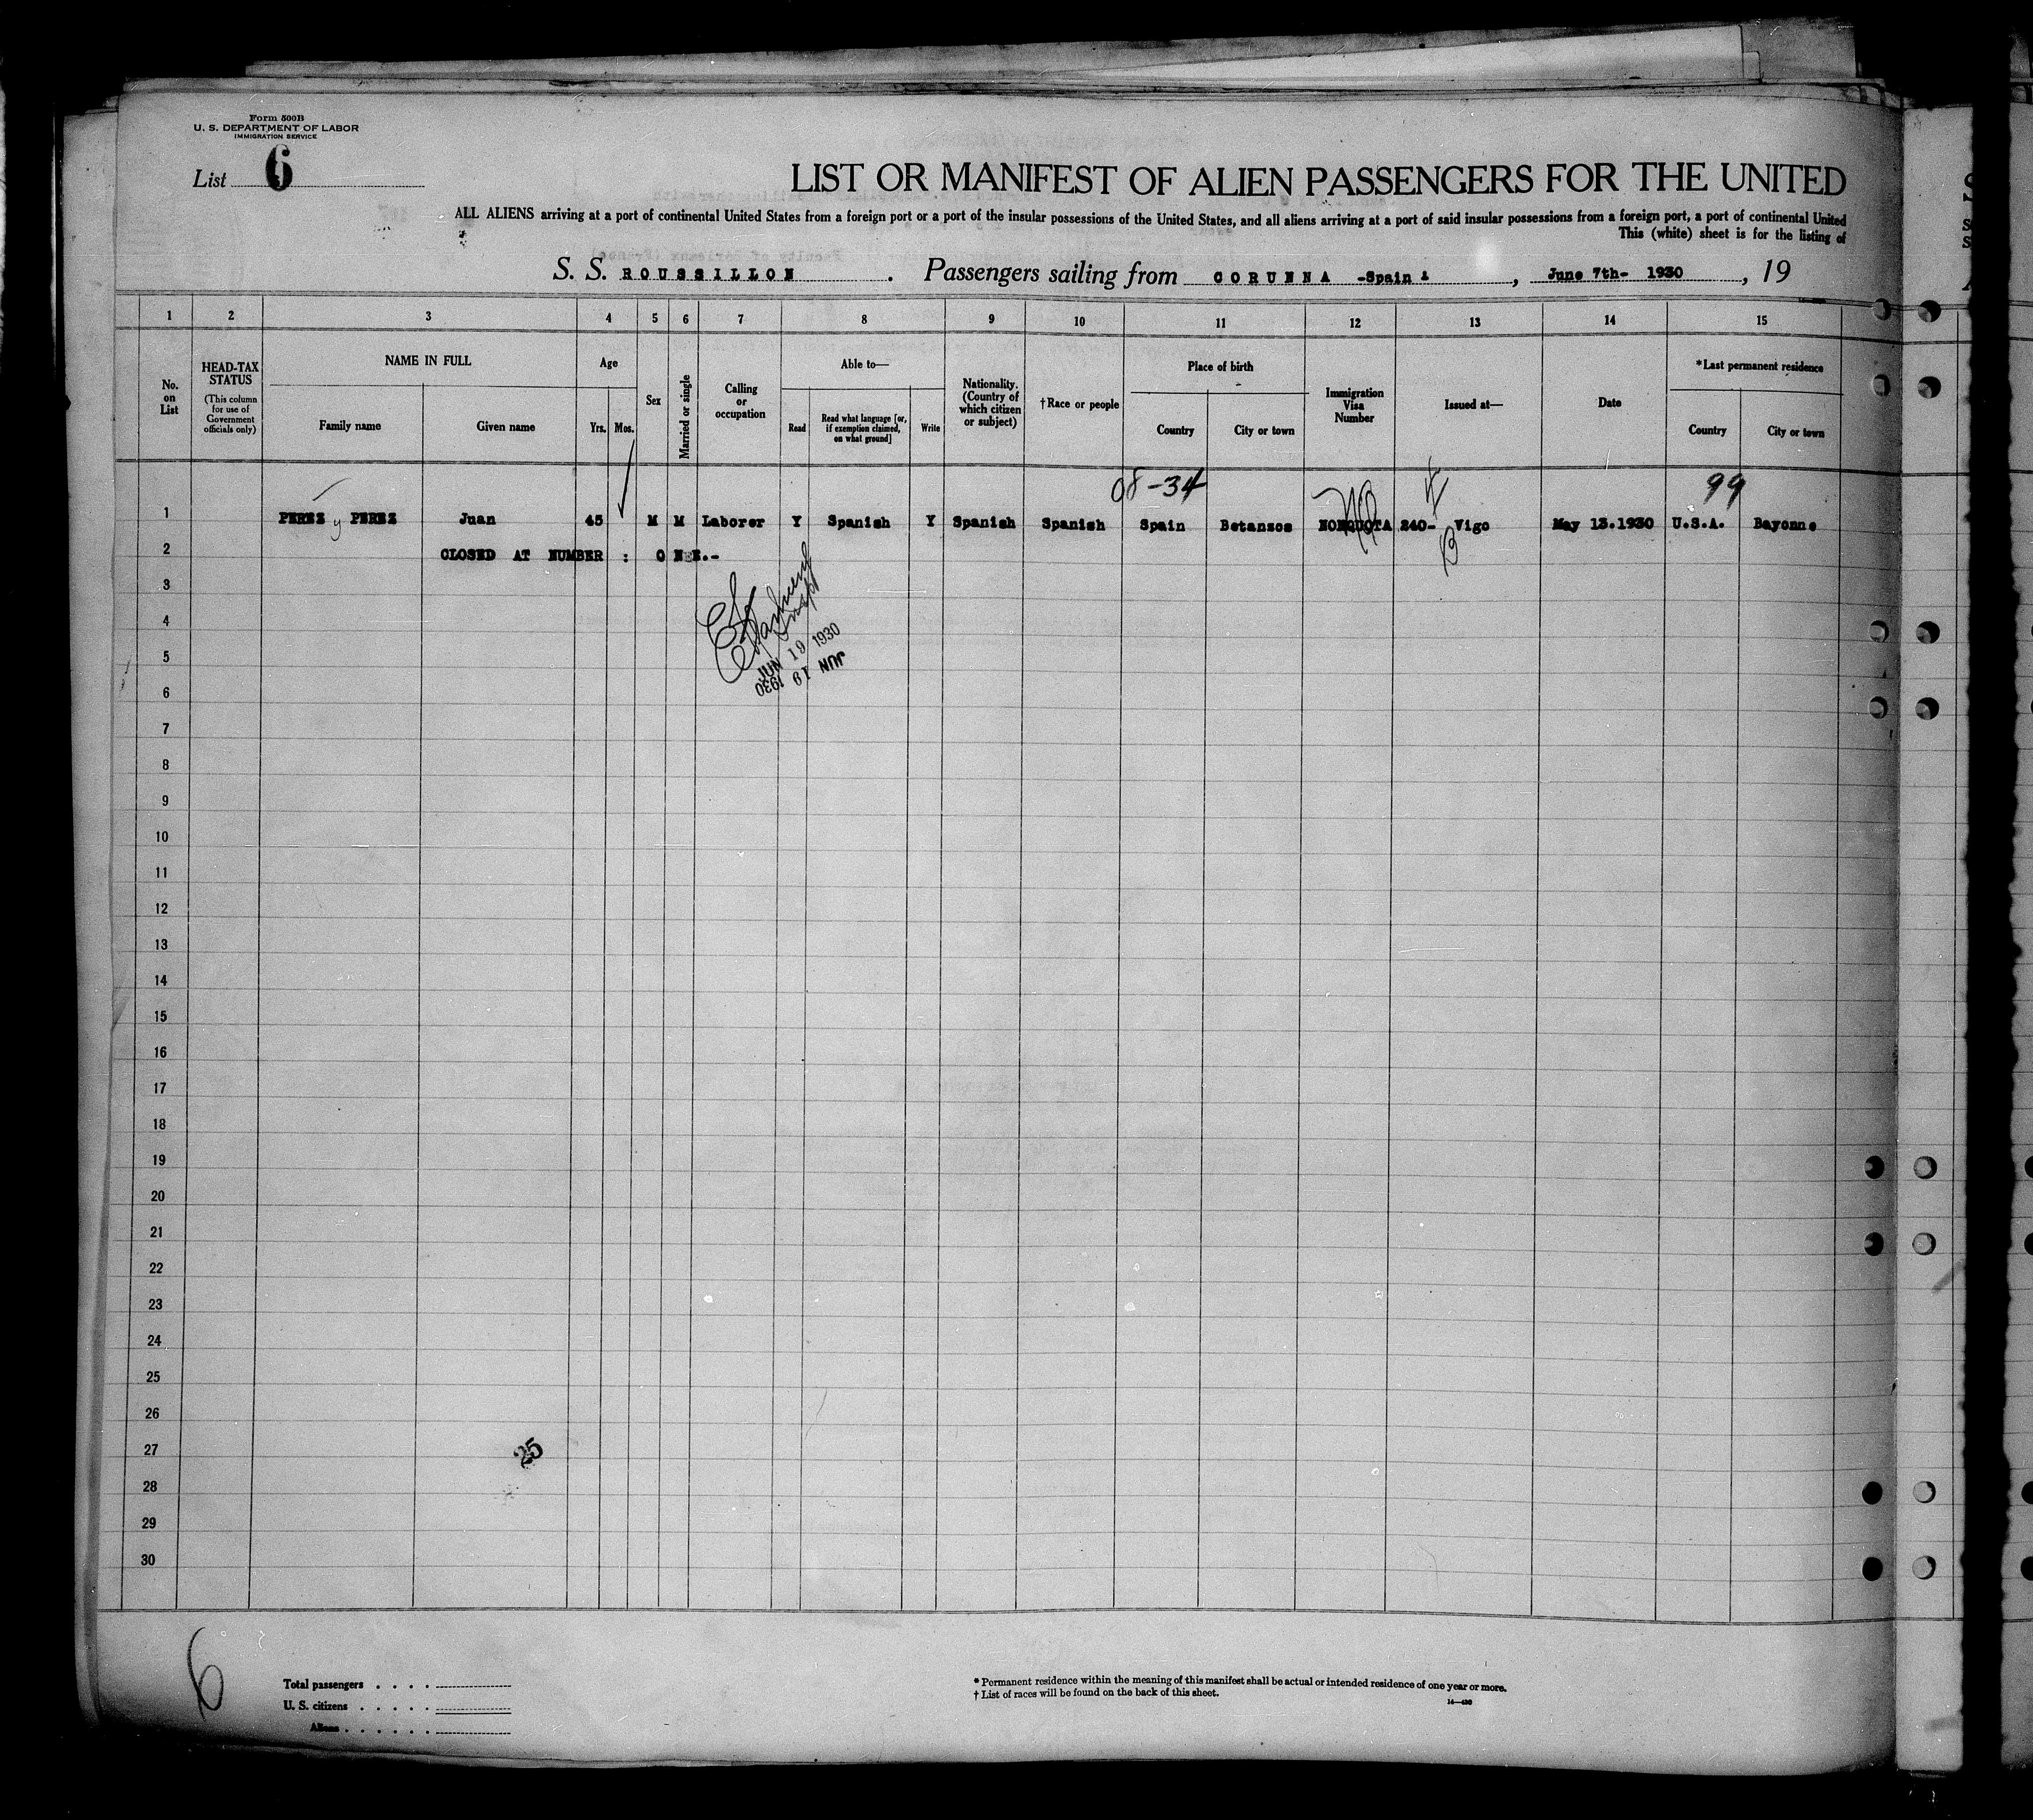 Form 500B
U. S. DEPARTMENT OF LABOR
IMMIGRATION SERVICE
List 6
LIST OR MANIFEST OF ALIEN PASSENGERS FOR THE UNITED
ALL ALIENS arriving at a port of continental United States from a foreign port or a port of the insular possessions of the United States, and all aliens arriving at a port of said insular possessions from a foreign port, a port of continental United
This (white) sheet is for the listing of
S. S. ROUSSILLON . Passengers sailing from CORUNNA -Spain- , June 7th- 1930 , 19
1 2 3 4 5 6 7 8 9 10 11 12 13 14 15
No. on List
HEAD-TAX STATUS
(This column for use of Government officials only)
NAME IN FULL
Family name
Given name
Age
Yrs.
Mos.
Sex
Married or single
Calling or occupation
Able to—
Read
Read what language [or, if exemption claimed, on what ground]
Write
Nationality. (Country of which citizen or subject)
†Race or people
Place of birth
Country
City or town
Immigration Visa Number
Issued at—
Date
*Last permanent residence
Country
City or town
08-34
99
1 PEREZ y PEREZ Juan 45 M M Laborer Y Spanish Y Spanish Spanish Spain Betanzos NONQUOTA 240- Vigo May 13.1930 U.S.A. Bayonne
2 CLOSED AT NUMBER : ONE.-
3
4
JUN 19 1930
5
JUN 19 1930
6
7
8
9
10
11
12
13
14
15
16
17
18
19
20
21
22
23
24
25
26
27
25
28
29
30
6
Total passengers . . . .
U. S. citizens . . . . .
Aliens . . . . . .
* Permanent residence within the meaning of this manifest shall be actual or intended residence of one year or more.
† List of races will be found on the back of this sheet.
14—430